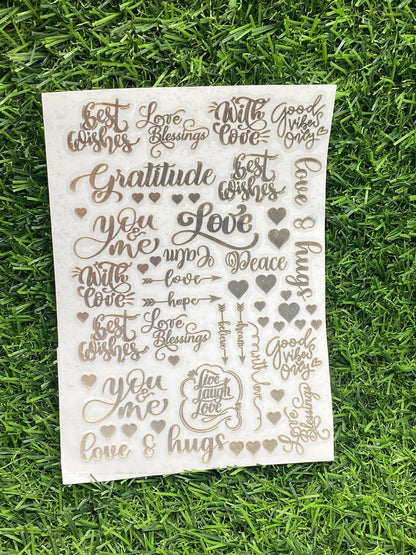 Best
wishes
Love
Blessings
With
love
Good
vibes
only
Gratitude
Best
wishes
love & hugs
you
& me
Love
Karma
Peace
With
love
love
hope
Best
wishes
Love
Blessings
believe
dream
with love
Good
vibes
only
you
& me
Live
Laugh
Love
love & hugs